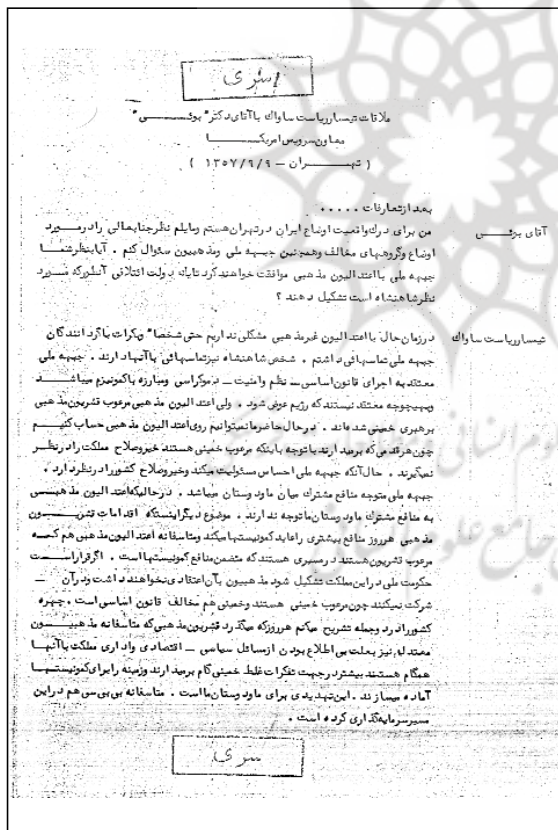 سری
ملاقات تیمسار ریاست ساواک با آقای دکتر "بوئـــــی"
معاون سرویس امریکـــــا
( تهـــــران – ۱۳۵۷/۶/۹ )
بعد از تعارفات .....
آقای بوئـــی
من برای درک واقعیت اوضاع ایران در تهران هستم و مایلم نظر جنابعالی را در مـــورد
اوضاع و گروههای مخالف و همچنین جبهه ملی و مذهبیون سئوال کنم . آیا بنظر شمـــا
جبهه ملی با اعتدالیون مذهبی موافقت خواهند کرد تا یک دولت ائتلافی آنطور که مـــورد
نظر شاهنشاه است تشکیل دهند ؟
تیمسار ریاست ساواک
در زمان حال با اعتدالیون غیر مذهبی مشکلی نداریم حتی شخصا" بکرات با گردانندگان
جبهه ملی تماسهائی داشتم . شخص شاهنشاه نیز تماسهائی با آنها دارند . جبهه ملی
معتقد به اجرای قانون اساسی – نظم و امنیت – دموکراسی و مبارزه با کمونیزم میباشـــد
و بهیچوجه معتقد نیستند که رژیم عوض شود . ولی اعتدالیون مذهبی مرعوب قشریون مذهبی
برهبری خمینی شده اند . در حال حاضر ما نمیتوانیم روی اعتدالیون مذهبی حساب کنیـــم
چون هر قدمی که برمیدارند با توجه باینکه مرعوب خمینی هستند خیر و صلاح مملکت را در نظر
نمیگیرند . حال آنکه جبهه ملی احساس مسئولیت میکند و خیر و صلاح کشور را در نظر دارد .
جبهه ملی متوجه منافع مشترک میان ما و دوستان میباشد . در حالیکه اعتدالیون مذهبـــی
به منافع مشترک ما و دوستان ما توجه ندارند . موضوع دیگر اینستکه اقدامات قشریـــون
مذهبی هر روز منافع بیشتری را عاید کمونیستها میکند و متاسفانه اعتدالیون مذهبی هم کـــه
مرعوب قشریون هستند در مسیری هستند که متضمن منافع کمونیستها است . اگر قرار اســـت
حکومت ملی در این مملکت تشکیل شود مذهبیون بآن اعتقادی نخواهند داشت و در آن –
شرکت نمیکنند چون مرعوب خمینی هستند و خمینی هم مخالف قانون اساسی است . چهره
کشور را در دو جمله تشریح میکنم هر روز که میگذرد قشریون مذهبی که متاسفانه مذهبیـــون
معتدل نیز بعلت بی اطلاع بودن از مسائل سیاسی – اقتصادی و اداری مملکت با آنهـــا
همگام هستند بیشتر در جهت تفکرات غلط خمینی گام برمیدارند و زمینه را برای کمونیستهـــا
آماده میسازند . این تهدیدی برای ما و دوستان ما است . متاسفانه بی بی سی هم در این
مسیر سرمایه گذاری کرده است .
سری